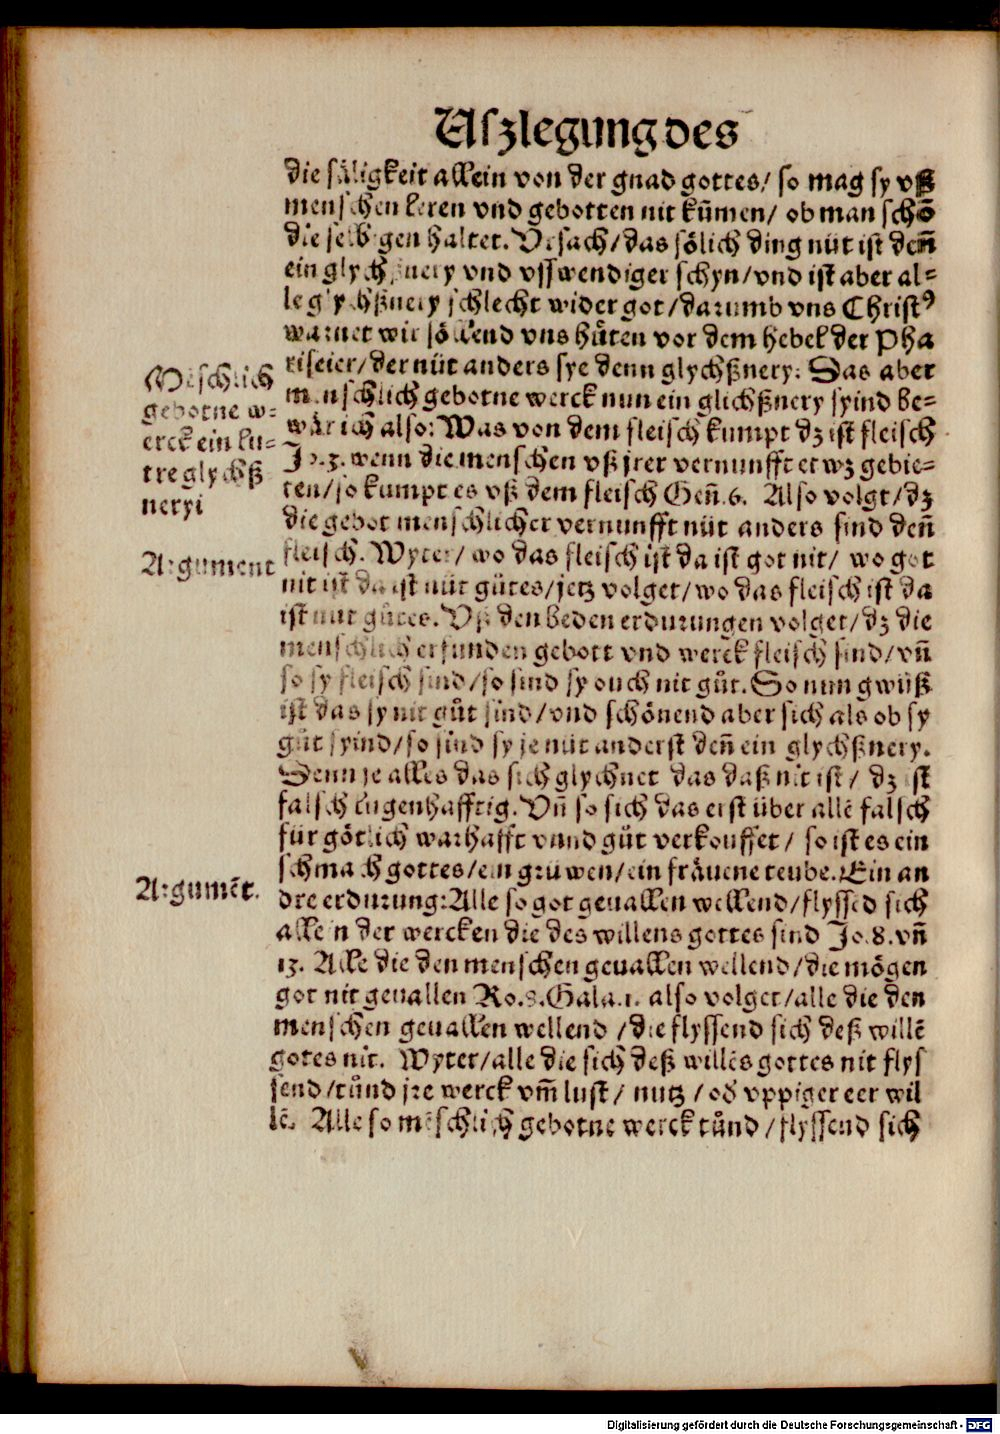 Uſzlegung des
die ſäligkeit allein von der gnad gottes/ ſo mag ſy vſſ
menſchen leren vnd gebotten nit kum̄en/ ob man ſchō
die ſelbigen haltet. Vrſach/das ſölich ding nüt iſt deñ
ein glychßnery vnd vſſwendiger ſchyn/vnd iſt aber al-
le glychßnery ſchlecht wider got/darumb vns Chriſtꝰ
warnet wir ſöllend vns hůten vor dem hebel der Pha
riſeier/der nüt anders ſye denn glychßnery. Das aber
menſchlich gebotne werck nun ein glichßnery ſyind be-
wär ich alſo: Was von dem fleiſch kumpt dz iſt fleiſch
Jo.3. wenn die menſchen vß jrer vernunfft etwz gebie-
ten/ſo kumpt es vß dem fleiſch Geñ.6. Alſo volgt/dz
die gebot menſchlicher vernunfft nüt anders ſind deñ
fleiſch. Wyter/ wo das fleiſch iſt da iſt got nit/ wo got
nit iſt da iſt nüt gůtes/jetz volget/wo das fleiſch iſt da
iſt nüt gůtes. Vß den beden erdurungen volget/dz die
menſchlich erfunden gebott vnd werck fleiſch ſind/vñ
ſo ſy fleiſch ſind/ſo ſind ſy ouch nit gůt. So nun gwüß
iſt das ſy nit gůt ſind/vnd ſchönend aber ſich als ob ſy
gůt ſyind/ſo ſind ſy je nüt anderſt deñ ein glychßnery.
Denn je alles das ſich glychnet das daß nit iſt/ dz iſt
falſch lugenhafftig. Vñ ſo ſich das erſt über allē falſch
für götlich warhafft vnnd gůt verkouffet/ ſo iſt es ein
ſchmach gottes/ein grüwen/ein fräuene teube. Ein an
dre erdurung: Alle ſo got geuallen wellend/flyſſēd ſich
allein der wercken die des willens gottes ſind Jo.8.vñ
13. Alle die den menſchen geuallen wellend/die mögen
got nit geuallen Ro.8.Gala.1. alſo volget/alle die den
menſchen geuallen wellend /die flyſſend ſich deß willē
gotes nit. Wyter/alle die ſich deß willēs gottes nit flyſ
ſend/tůnd jre werck vm̄ luſt/ nutz /od̕ vppiger eer wil
lē. Alle ſo mēſchlich gebotne werck tůnd/flyſſend ſich
Mēſchlich
gebotne w-
erck ein lu-
tre glychß
neryi
Argument
Argumēt.
Digitalisierung gefördert durch die Deutsche Forschungsgemeinschaft - DFG